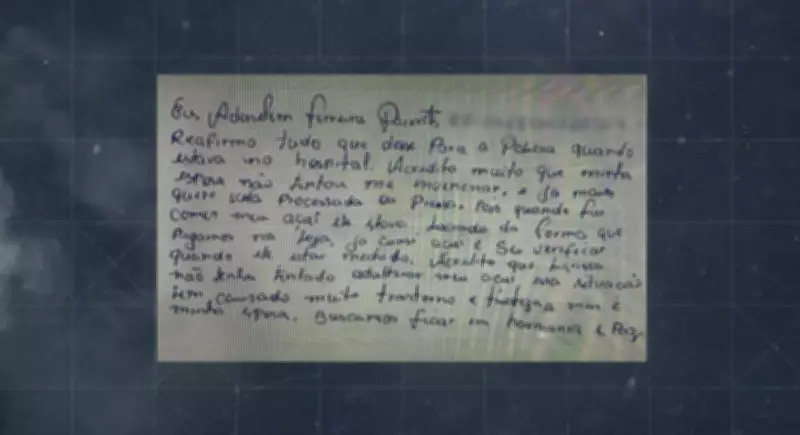 Eu, Adenilson Ferreira Parente,
Reafirmo tudo que disse Para a Policia quando
estava no hospital. Acredito muito que minha
esposa não tentou me envenenar, e ja mais
quero vela Processada ou Presa. Pois quando fui
comer meu açaí ele estava da forma que
Pegamos na loja, Ja comi açaí e Sei verificar
quando ele esta mexido. Acredito que
não tenha tentado adulterar meu açaí essa situação
tem causado muito transtorno e tristeza a mim e
minha esposa. Buscamos ficar em harmonia e Paz